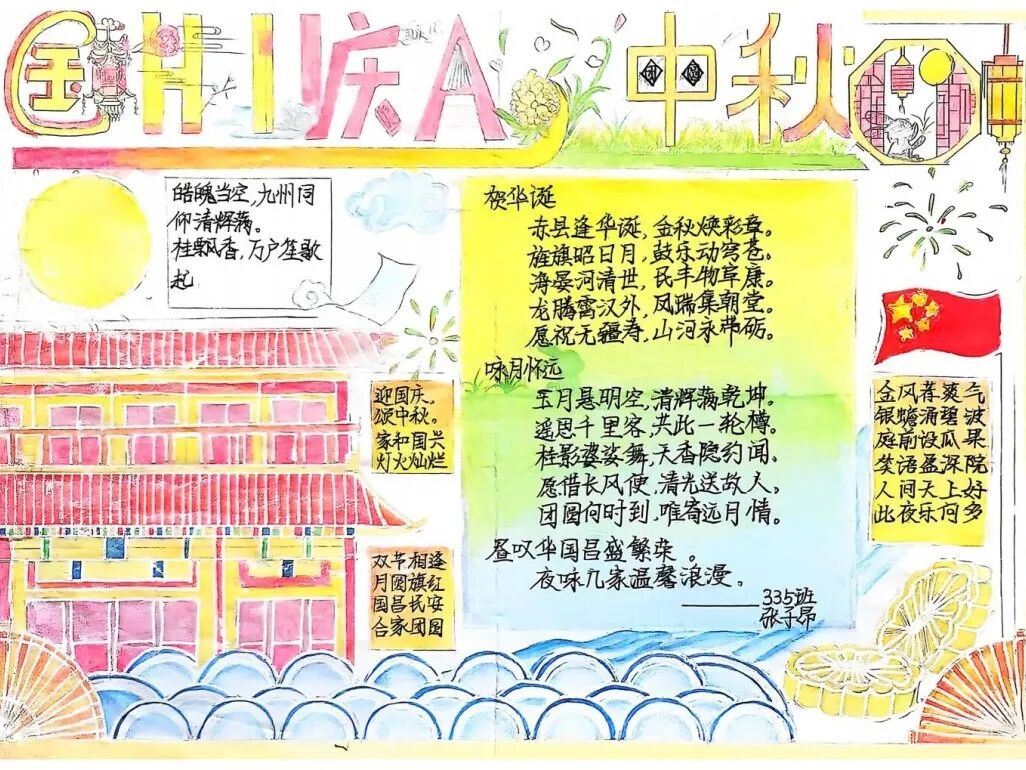 国HI庆A 中秋
团圆
皓魄当空，九州同
仰清辉满。
桂飘香，万户笙歌
起
贺华诞
赤县逢华诞，金秋焕彩章。
旌旗昭日月，鼓乐动穹苍。
海晏河清世，民丰物阜康。
龙腾霄汉外，凤瑞集朝堂。
愿祝无疆寿，山河永带砺。
咏月怀远
玉月悬明空，清辉满乾坤。
遥思千里客，共此一轮樽。
桂影婆娑舞，天香隐约闻。
愿借长风使，清光送故人。
团圆何时到，唯寄远月情。
昼叹华国昌盛繁荣。
夜咏几家温馨浪漫。
——335班
张子昂
迎国庆，
颂中秋。
家和国兴
灯火灿烂
双节相逢
月圆旗红
国昌民安
合家团圆
金风荐爽气
银蟾涌碧波
庭前设瓜果
笑语盈深院
人间天上好
此夜乐何多